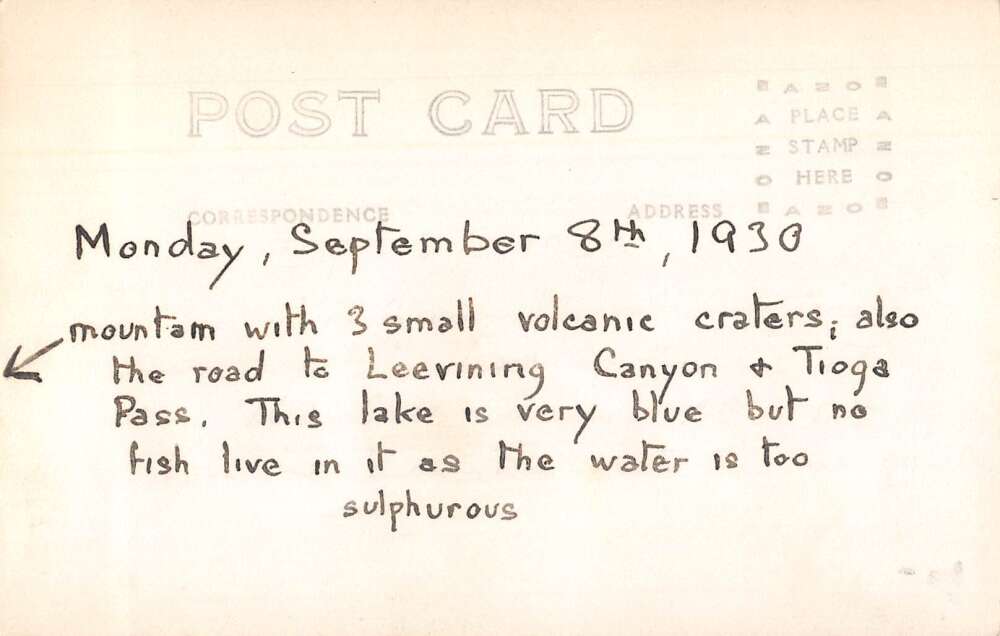 POST CARD
AZO
PLACE
STAMP
HERE
AZO
CORRESPONDENCE ADDRESS
Monday, September 8th, 1930
mountain with 3 small volcanic craters; also
the road to Leevining Canyon + Tioga
Pass. This lake is very blue but no
fish live in it as the water is too
sulphurous